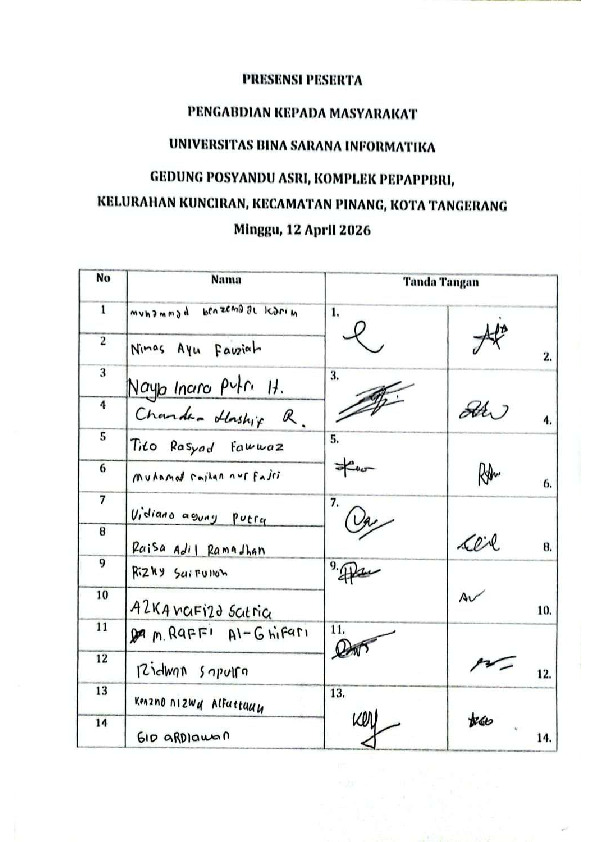 PRESENSI PESERTA
PENGABDIAN KEPADA MASYARAKAT
UNIVERSITAS BINA SARANA INFORMATIKA
GEDUNG POSYANDU ASRI, KOMPLEK PEPAPPBRI,
KELURAHAN KUNCIRAN, KECAMATAN PINANG, KOTA TANGERANG
Minggu, 12 April 2026
No Nama Tanda Tangan
1 muhammad karim 1.
2 Nimas Ayu Fauziah 2.
3 Nayla Inara Putri H. 3.
4 Chandra Hashif R. 4.
5 Tito Rasyad Fawwaz 5.
6 muhamad raihan nur Fajri 6.
7 Vidiano agung putra 7.
8 Raisa Adil Ramadhan 8.
9 Rizky Saifulloh 9.
10 AZKA nafiza Satria 10.
11 m. RAFFI Al-Ghifari 11.
12 Ridwan Saputra 12.
13 nizwa 13.
14 GIO ARDIawan 14.